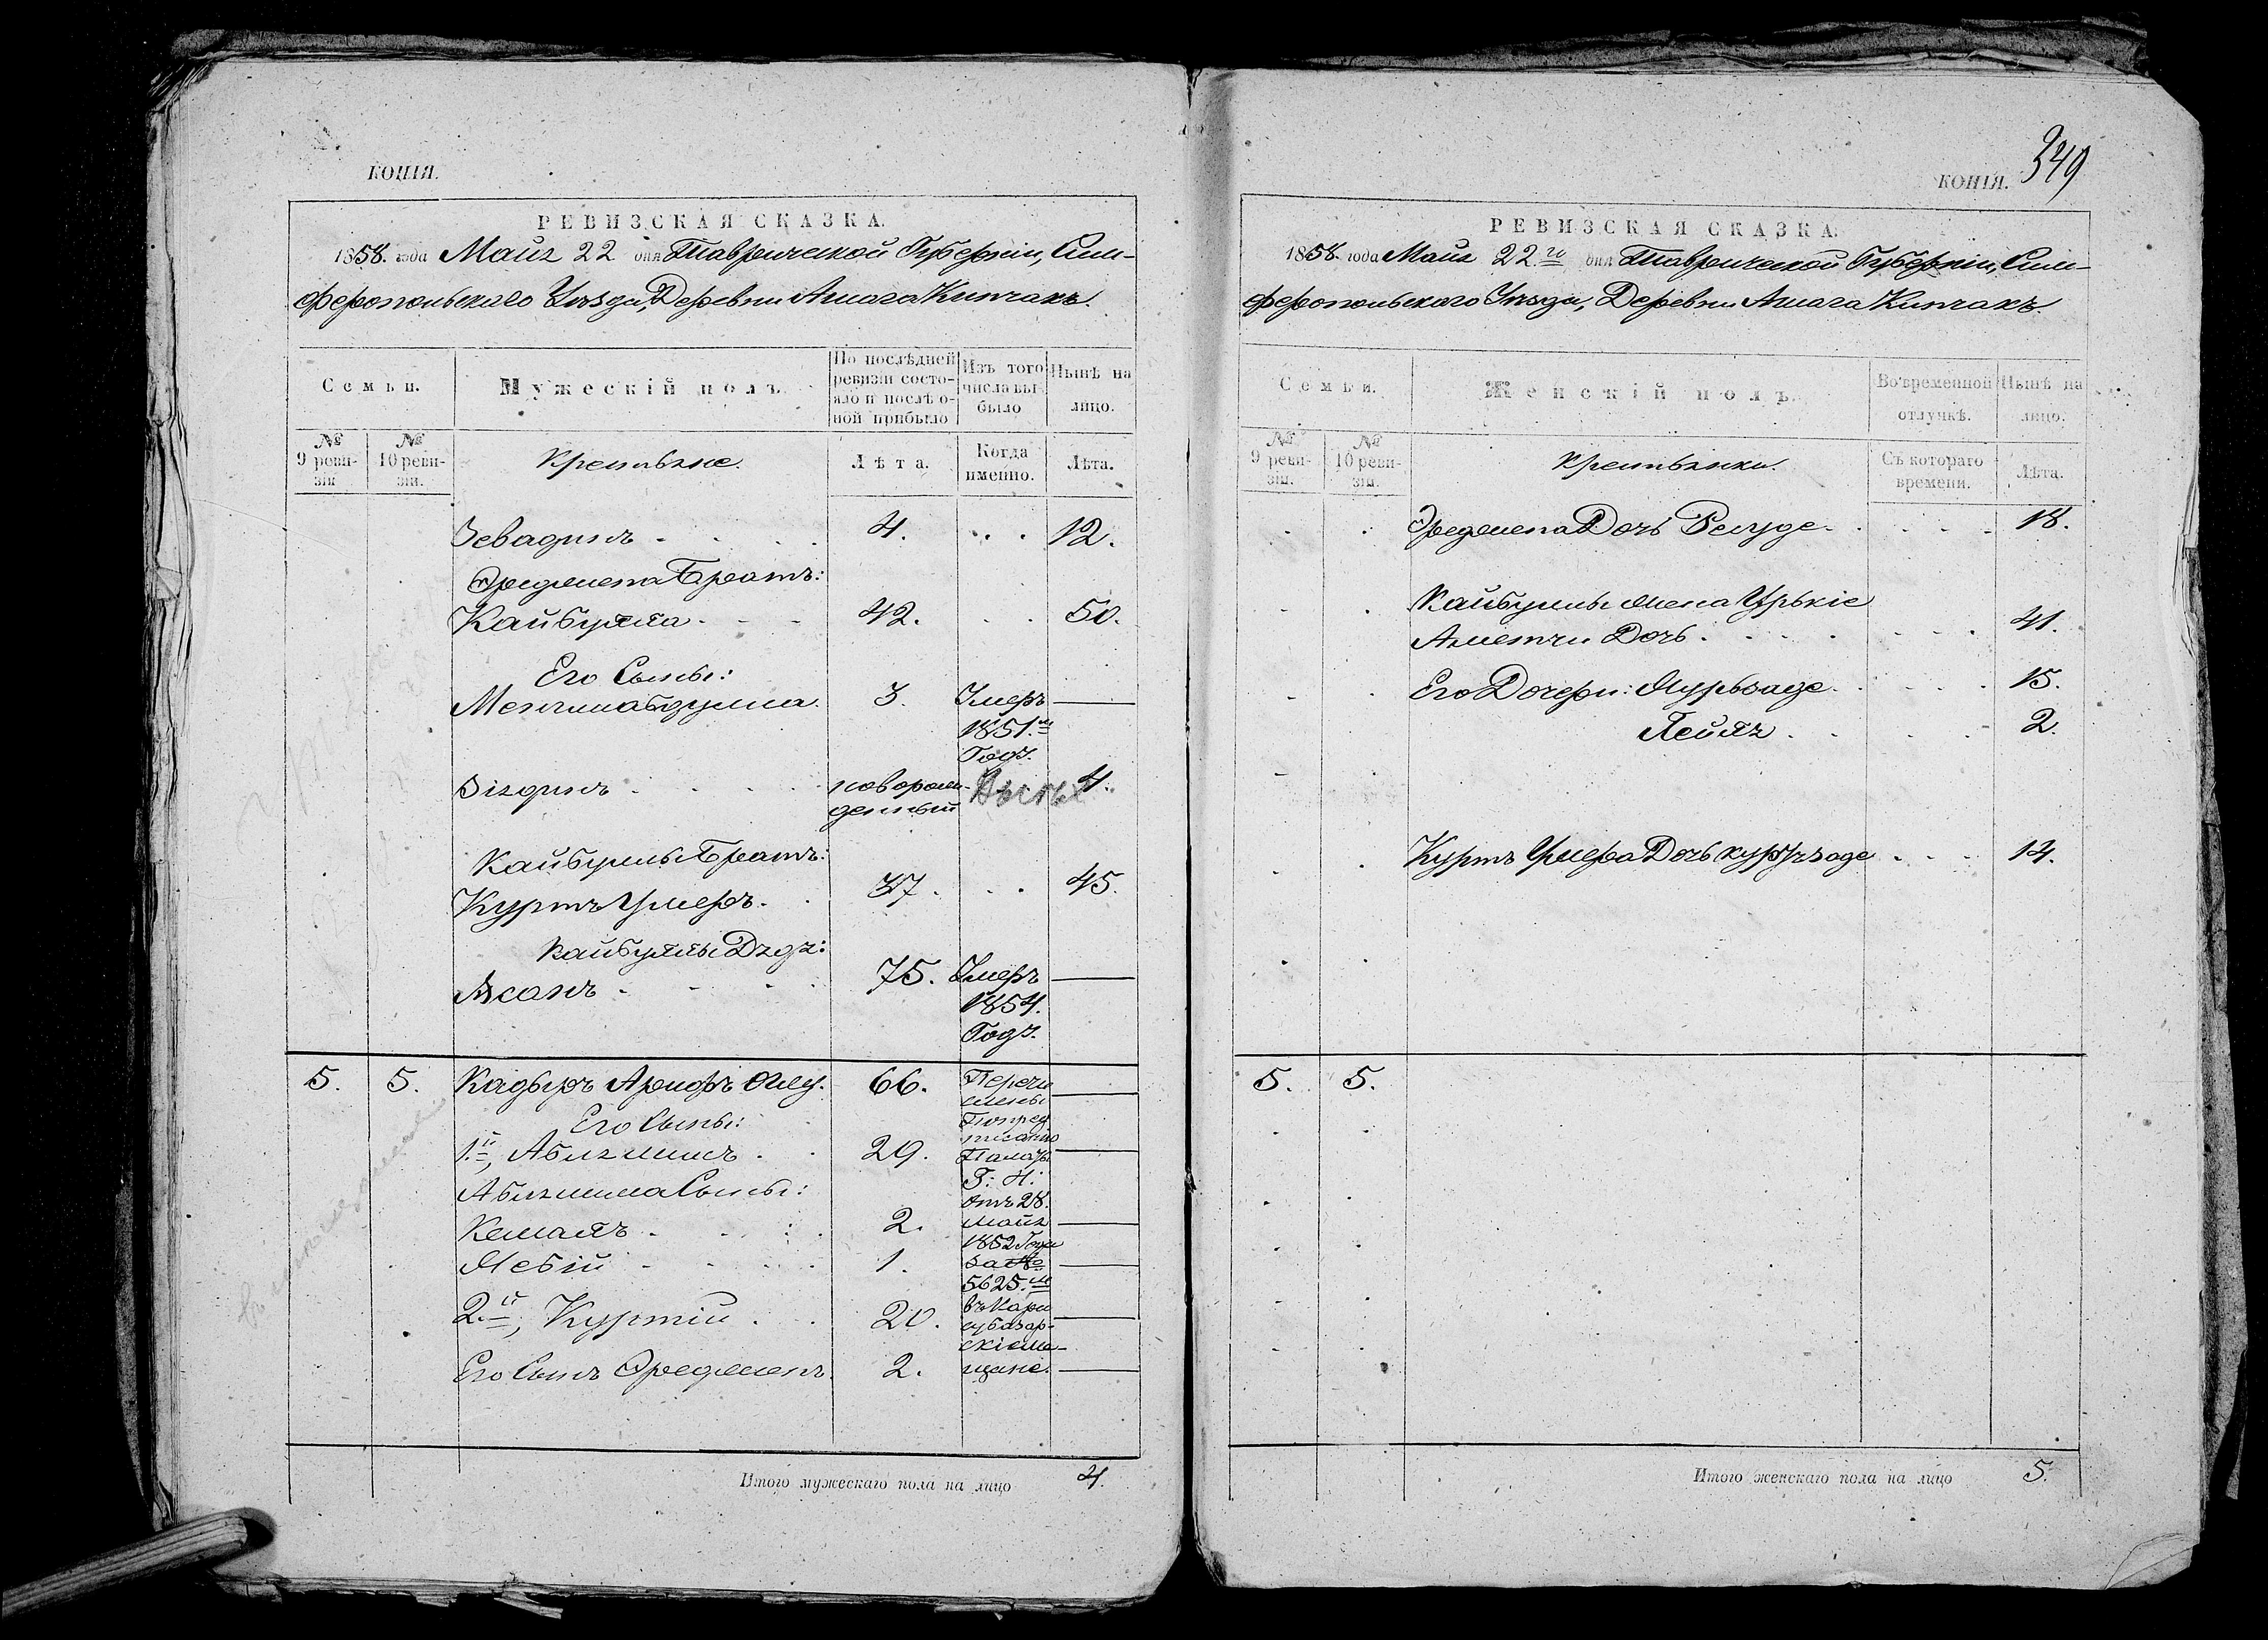 КОПІЯ.
РЕВИЗСКАЯ СКАЗКА.
1858. года Маія 22 дня Таврической Губерніи, Сим-
феропольскаго Уѣзда, Деревни Ашага Кипчакъ.
Семьи.
Мужескій полъ.
По послѣдней
ревизіи состо-
яло и послѣ о-
ной прибыло
Изъ того
числа вы-
было
Нынѣ на
лицо.
№
9 реви-
зіи
№
10 реви-
зіи.
Крестьяне.
Лѣта.
Когда
именно.
Лѣта.
Зевадинъ . . . . 4. . . . 12.
Эреджепа Братъ:
Кайбулла . . . 42. . . 50.
Его Сыны:
Менглиабдулла 3. Умеръ
1851.м
Годѣ.
Зіядинъ . . . . новорож-
денный 4.
Кайбуллы Братъ:
Куртъ Умеръ. . 37. . . 45.
Кайбуллы Дядя:
Асанъ . . . . 75. Умеръ
1854.
Годѣ.
5. 5. Кадыръ Арифъ Оглу. 66. Перечи
слены
Его Сыны:
Попред
писанію
1.й, Абляшимъ . . 29. Палаты
Г: И:
Абляшима Сыны:
отъ 28.
Кемалъ . . . . 2. Маія
1852 Года
Мебій . . . . 1. за №
5625.м
2.й, Куртій . . 20. въ Кара
субазар-
скіе мѣ-
Его Сынъ Эреджепъ. 2. щане.
Итого мужескаго пола на лицо 4.
349
КОПІЯ.
РЕВИЗСКАЯ СКАЗКА.
1858. года Маія 22.го дня Таврической Губерніи, Сим-
феропольскаго Уѣзда, Деревни Ашага Кипчакъ.
Семьи.
Женскій полъ.
Во временной
отлучкѣ.
Нынѣ на
лицо.
№
9 реви-
зіи.
№
10 реви-
зіи.
Крестьянки.
Съ котораго
времени.
Лѣта.
Эреджепа Дочь . . . . 18.
Кайбуллы Жена Уркіе
Аметчи Дочь . . . . 41.
Его Дочери: Мурьваде . . . . 15.
Лейля . . . . 2.
Куртъ Умера Дочь . . . 14.
5. 5.
Итого женскаго пола на лицо 5.